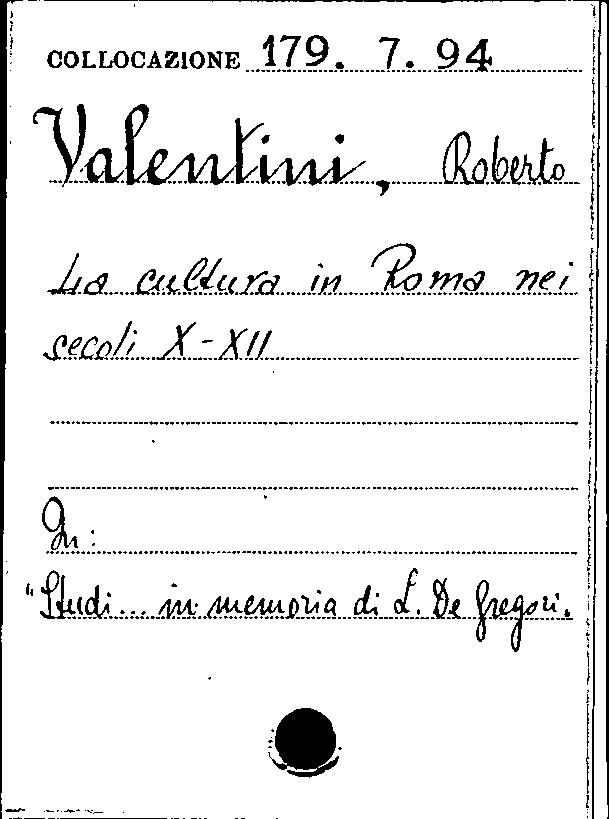 COLLOCAZIONE 179. 7. 94
Valentini, Roberto
La cultura in Roma nei
secoli X-XII
In:
"Studi... in memoria di L. De Gregori.